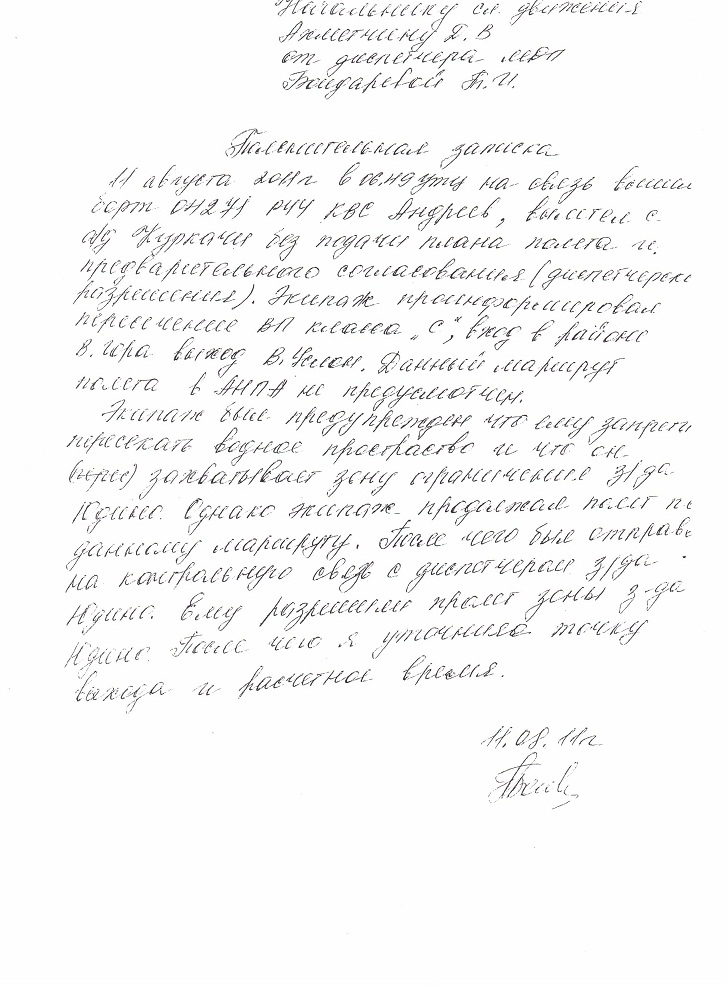 Начальнику сл. движения
Ахметчину Д. В
от диспетчера МДП
Бондаревой Т. И.
Пояснительная записка
11 августа 2011г в 06.49 УТЦ на связь вышел
борт 04271 Р44 КВС Андреев, вылетел с
а/д Куркачи без подачи плана полета и
предварительного согласования (диспетчерск
разрешения). Экипаж проинформировал
пересечение ВП класса „С", вход в районе
В. Гора выход В. Услон. Данный маршрут
полета в АНПА не предусмотрен.
Экипаж был предупрежден что ему запрети
пересекать водное простраство и что он
захватывает зону ограничения з/да
Юдино. Однако экипаж продолжал полет по
данному маршруту. После чего был отправле
на контрольную связь с диспетчером з/да
Юдино. Ему разрешили пролет зоны з-да
Юдино. После чего я уточнила точку
выхода и расчетное время.
11.08.11г